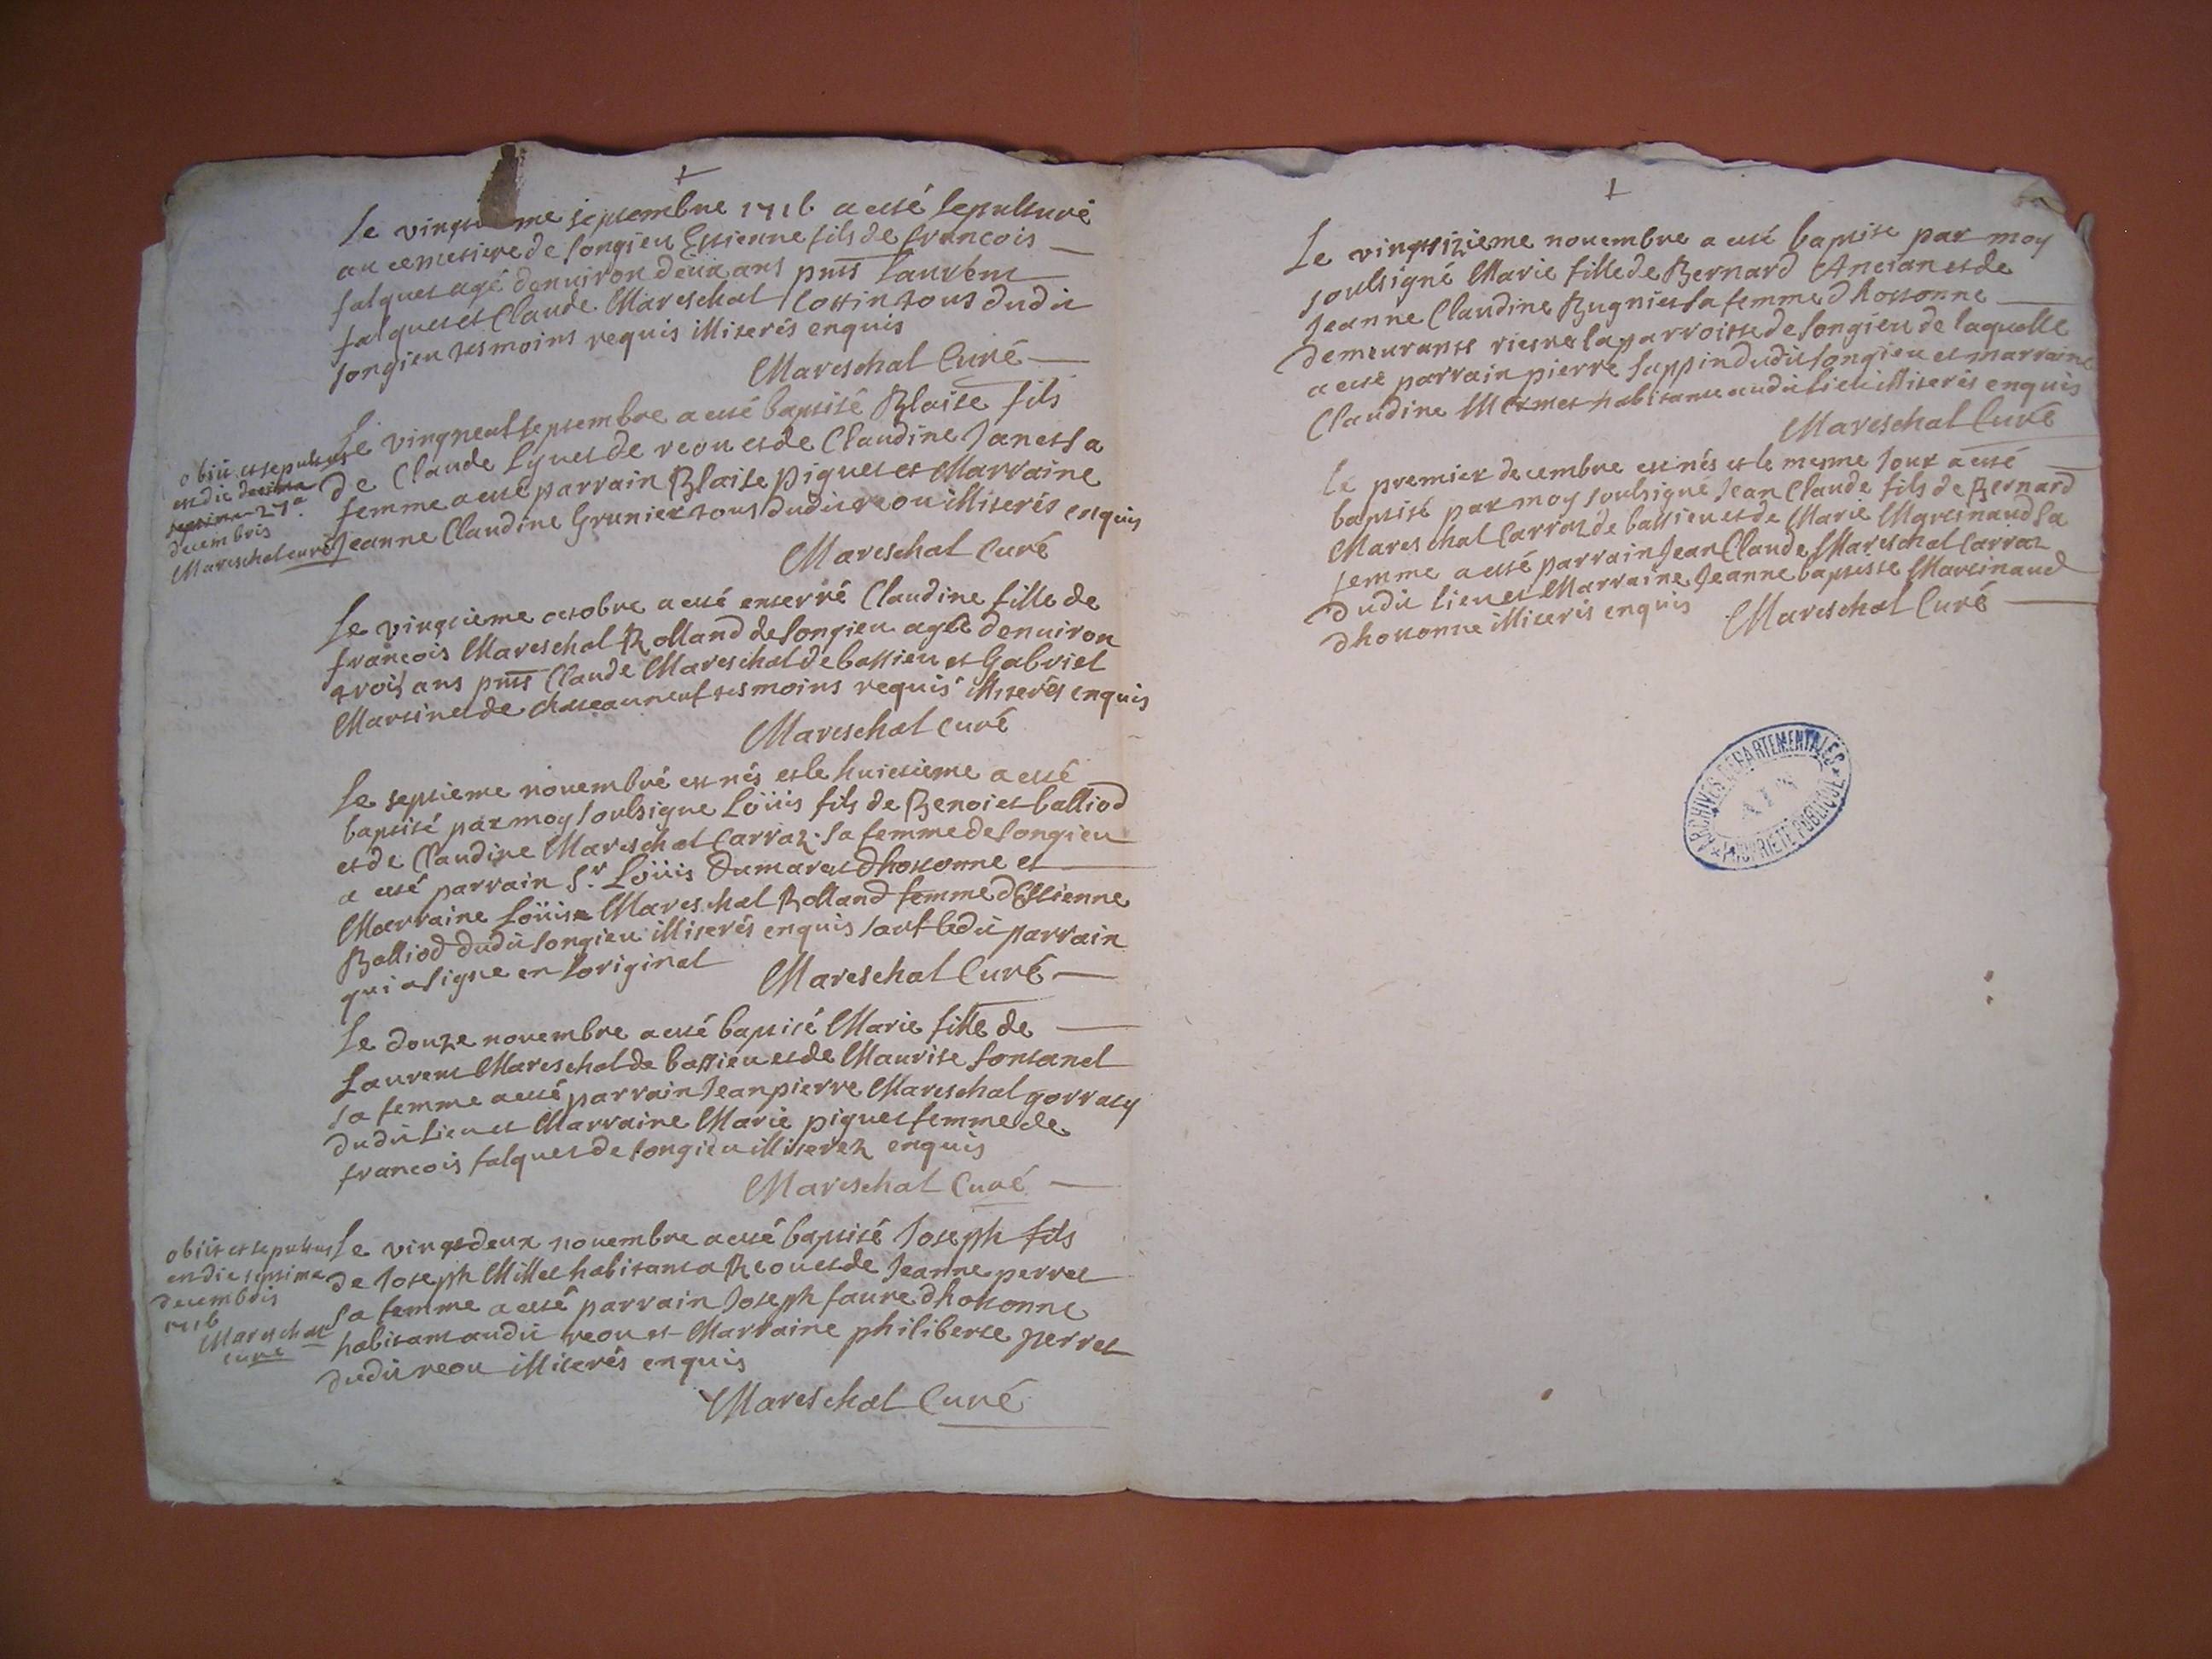 Le vingt me septembre 1716 a esté sepulturé
au cemetiere de songieu Estienne fils de francois
falquet agé denuiron deux ans pnts Laurent
falquet et Claude Mareschal Cottin tous dudit
songieu tesmoins requis illiterés enquis
Mareschal Curé
Le vingneuf septembre a esté baptisé Blaise fils
de Claude Lyuet de reou et de Claudine Janet sa
femme a esté parrain Blaise piquet et Marraine
Jeanne Claudine Grunier tous dudit reou illiterés enquis
Mareschal Curé
obiit et sepultus
est die decima
septima 27a
decembris
Mareschal curé
Le vingtieme octobre a esté enterré Claudine fille de
francois Mareschal Rolland de songieu agée denuiron
trois ans pnts Claude Mareschal de bassieu et Gabriel
Martinet de chasteauneuf tesmoins requis illiterés enquis
Mareschal curé
Le septieme nouembre est nés et le huictieme a esté
baptisé par moy soubsigne Loüis fils de Benoict balliod
et de Claudine Mareschal Carraz sa femme de songieu
a esté parrain Sr Loüis Dumaret dhotonne et
Marraine Loüise Mareschal Rolland femme dEstienne
Balliod dudit songieu illiterés enquis sauf ledit parrain
qui a signe en loriginal
Mareschal Curé
Le douze nouembre a esté baptisé Marie fille de
Laurent Mareschal de bassieu et de Maurise fontanel
sa femme a esté parrain Jean pierre Mareschal gorraty
dudit lieu et Marraine Marie piquet femme de
francois falquet de songieu illiterez enquis
Mareschal Curé
Le vingtdeux nouembre a esté baptisé Joseph fils
de Joseph Millet habitant a Reou et de Jeanne perret
sa femme a esté parrain Joseph faure dhotonne
habitant audit reou et Marraine philiberte perret
dudit reou illiterés enquis
Mareschal Curé
obiit et sepultus
en die septima
decembris
1716
Mareschal
curé
Le vingtsizieme nouembre a esté baptisé par moy
soubsigné Marie fille de Bernard Ancian et de
Jeanne Claudine Bugniet sa femme dhotonne
demeurants riere la parroisse de songieu de laquelle
a esté parrain pierre suppin dudit songieu et marraine
Claudine Mermet habitante audit lieu illiterés enquis
Mareschal Curé
Le premier decembre est nés et le mesme Jour a esté
baptisé par moy soubsigné Jean Claude fils de Bernard
Mareschal Carraz de bassieu et de Marie Martinaud sa
femme a esté parrain Jean Claude Mareschal Carraz
dudit lieu et Marraine Jeanne baptiste Martinaud
dhotonne illiteris enquis
Mareschal Curé
ARCHIVES DEPARTEMENTALES
AIN
PROPRIETE PUBLIQUE